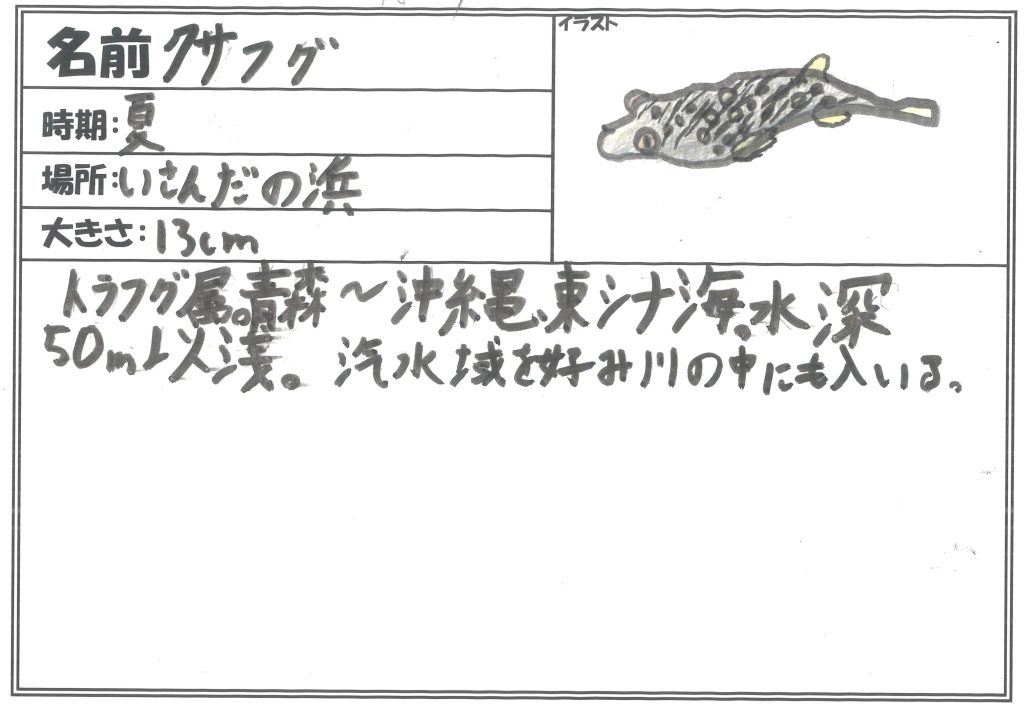 名前 クサフグ
イラスト
時期:夏
場所:いさんだの浜
大きさ:13cm
トラフグ属。青森～沖縄、東シナ海。水深
50m以浅。汽水域を好み川の中にも入いる。